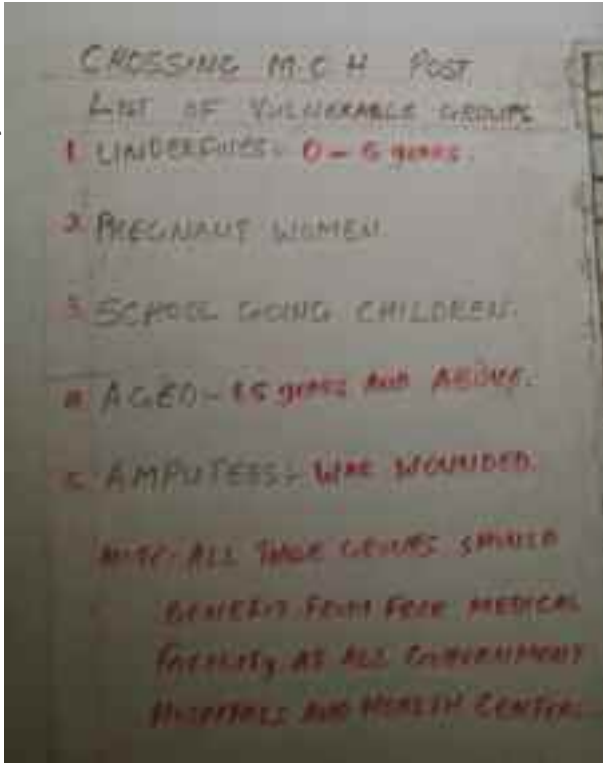 CROSSING M.C.H POST
LIST OF VULNERABLE GROUPS
1. UNDERFIVES:- 0 - 5 years.
2. PREGNANT WOMEN.
3. SCHOOL GOING CHILDREN.
4. AGED - 65 years AND ABOVE.
5. AMPUTEES:- WAR WOUNDED.
NOTE:- ALL THESE GROUPS SHOULD
BENEFIT FROM FREE MEDICAL
FACILITY AT ALL GOVERNMENT
HOSPITALS AND HEALTH CENTRES.